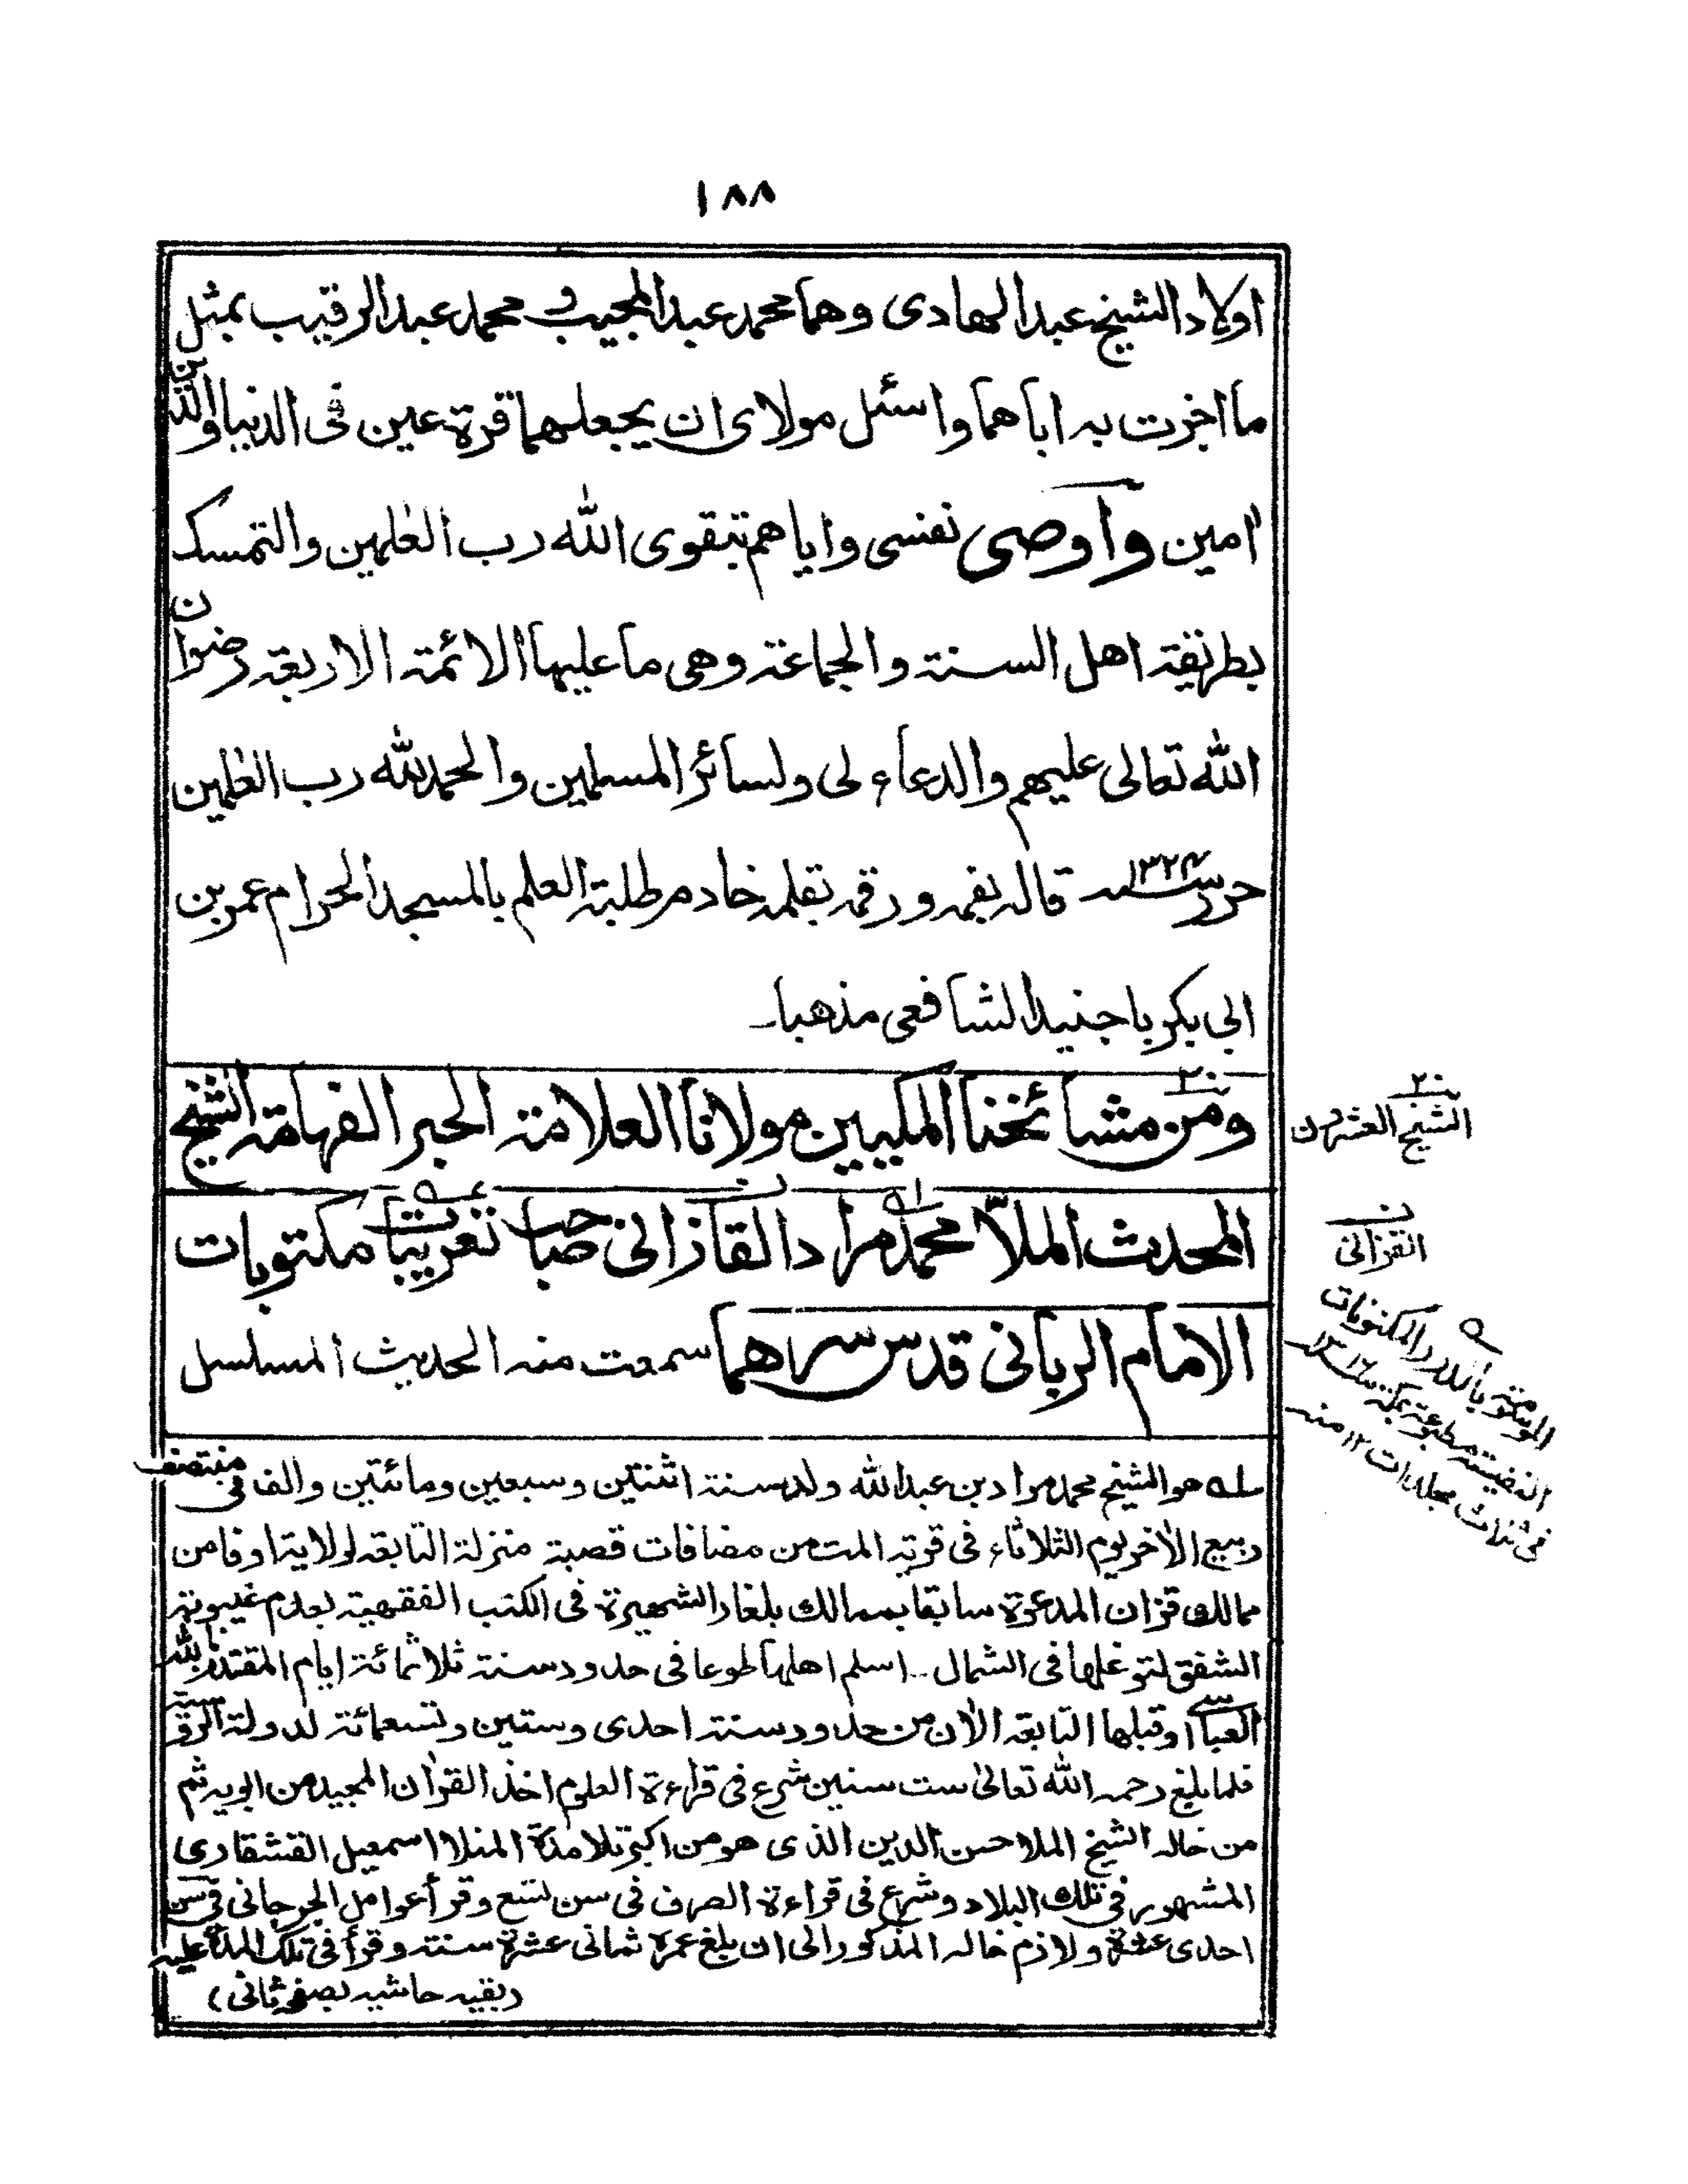 ١٨٨
اولاد الشيخ عبد الهادى وهما محمد عبد المجيب و محمد عبد الرقيب بمثل
ما اجزت به اباهما واسئل مولاى ان يجعلهما قرة عين فى الدنيا والدين
اٰمين واوصى نفسى واياهم بتقوى الله رب العٰلمين والتمسك
بطريقة اهل السنة والجماعة وهى ما عليها الائمة الاربعة رضوان
الله تعالى عليهم والدعاء لى ولسائر المسلمين والحمد لله رب العٰلمين
حرر سنه ١٣٢٤ قاله بفمه ورقمه بقلمه خادم طلبة العلم بالمسجد الحرام عمر بن
ابى بكر باجنيد الشافعى مذهبا۔
ومن مشائخنا المكيين مولانا العلامة الحبر الفهامة الشيخ
المحدث الملاّ محمد مراد القازانى صاحب تعريب مكتوبات
الامام الربانى قدس سرهما سمعت منه الحديث المسلسل
الشيخ العشرون
القزانى
الموسومة بالدرر المكنونات
النفيسة مطبوعة بمكة سنه ١٣١٦
فى ثلاث مجلدات ١٢ منه
سله هو الشيخ محمد مراد بن عبد الله ولد سنة اثنتين وسبعين ومائتين والف فى منتصف
ربيع الاٰخر يوم الثلاثاء فى قرية المت من مضافات قصبة منزلة التابعة لولاية اوفا من
ممالك قزان المدعوة سابقا بممالك بلغار الشهيرة فى الكتب الفقهية بعدم غيبوبة
الشفق لتوغلها فى الشمال۔ اسلم اهلها طوعا فى حدود سنة ثلاثمائة ايام المقتدر بالله
العباسى او قبلها التابعة الاٰن من حدود سنة احدى وستين وتسعمائة لدولة الروسية
فلما بلغ رحمه الله تعالىٰ ست سنين شرع فى قراءة العلوم اخذ القراٰن المجيد من ابويه ثم
من خاله الشيخ الملا حسن الدين الذى هو من اكبر تلامذة المنلا اسمعيل القشقارى
المشهور فى تلك البلاد وشرع فى قراءة الصرف فى سن تسع وقرأ عوامل الجرجانى فى سن
احدى عشرة ولازم خاله المذكور الى ان بلغ عمره ثمانى عشرة سنة وقرأ فى تلك المدة عليه
(بقيه حاشيه بصفحه ثانى)